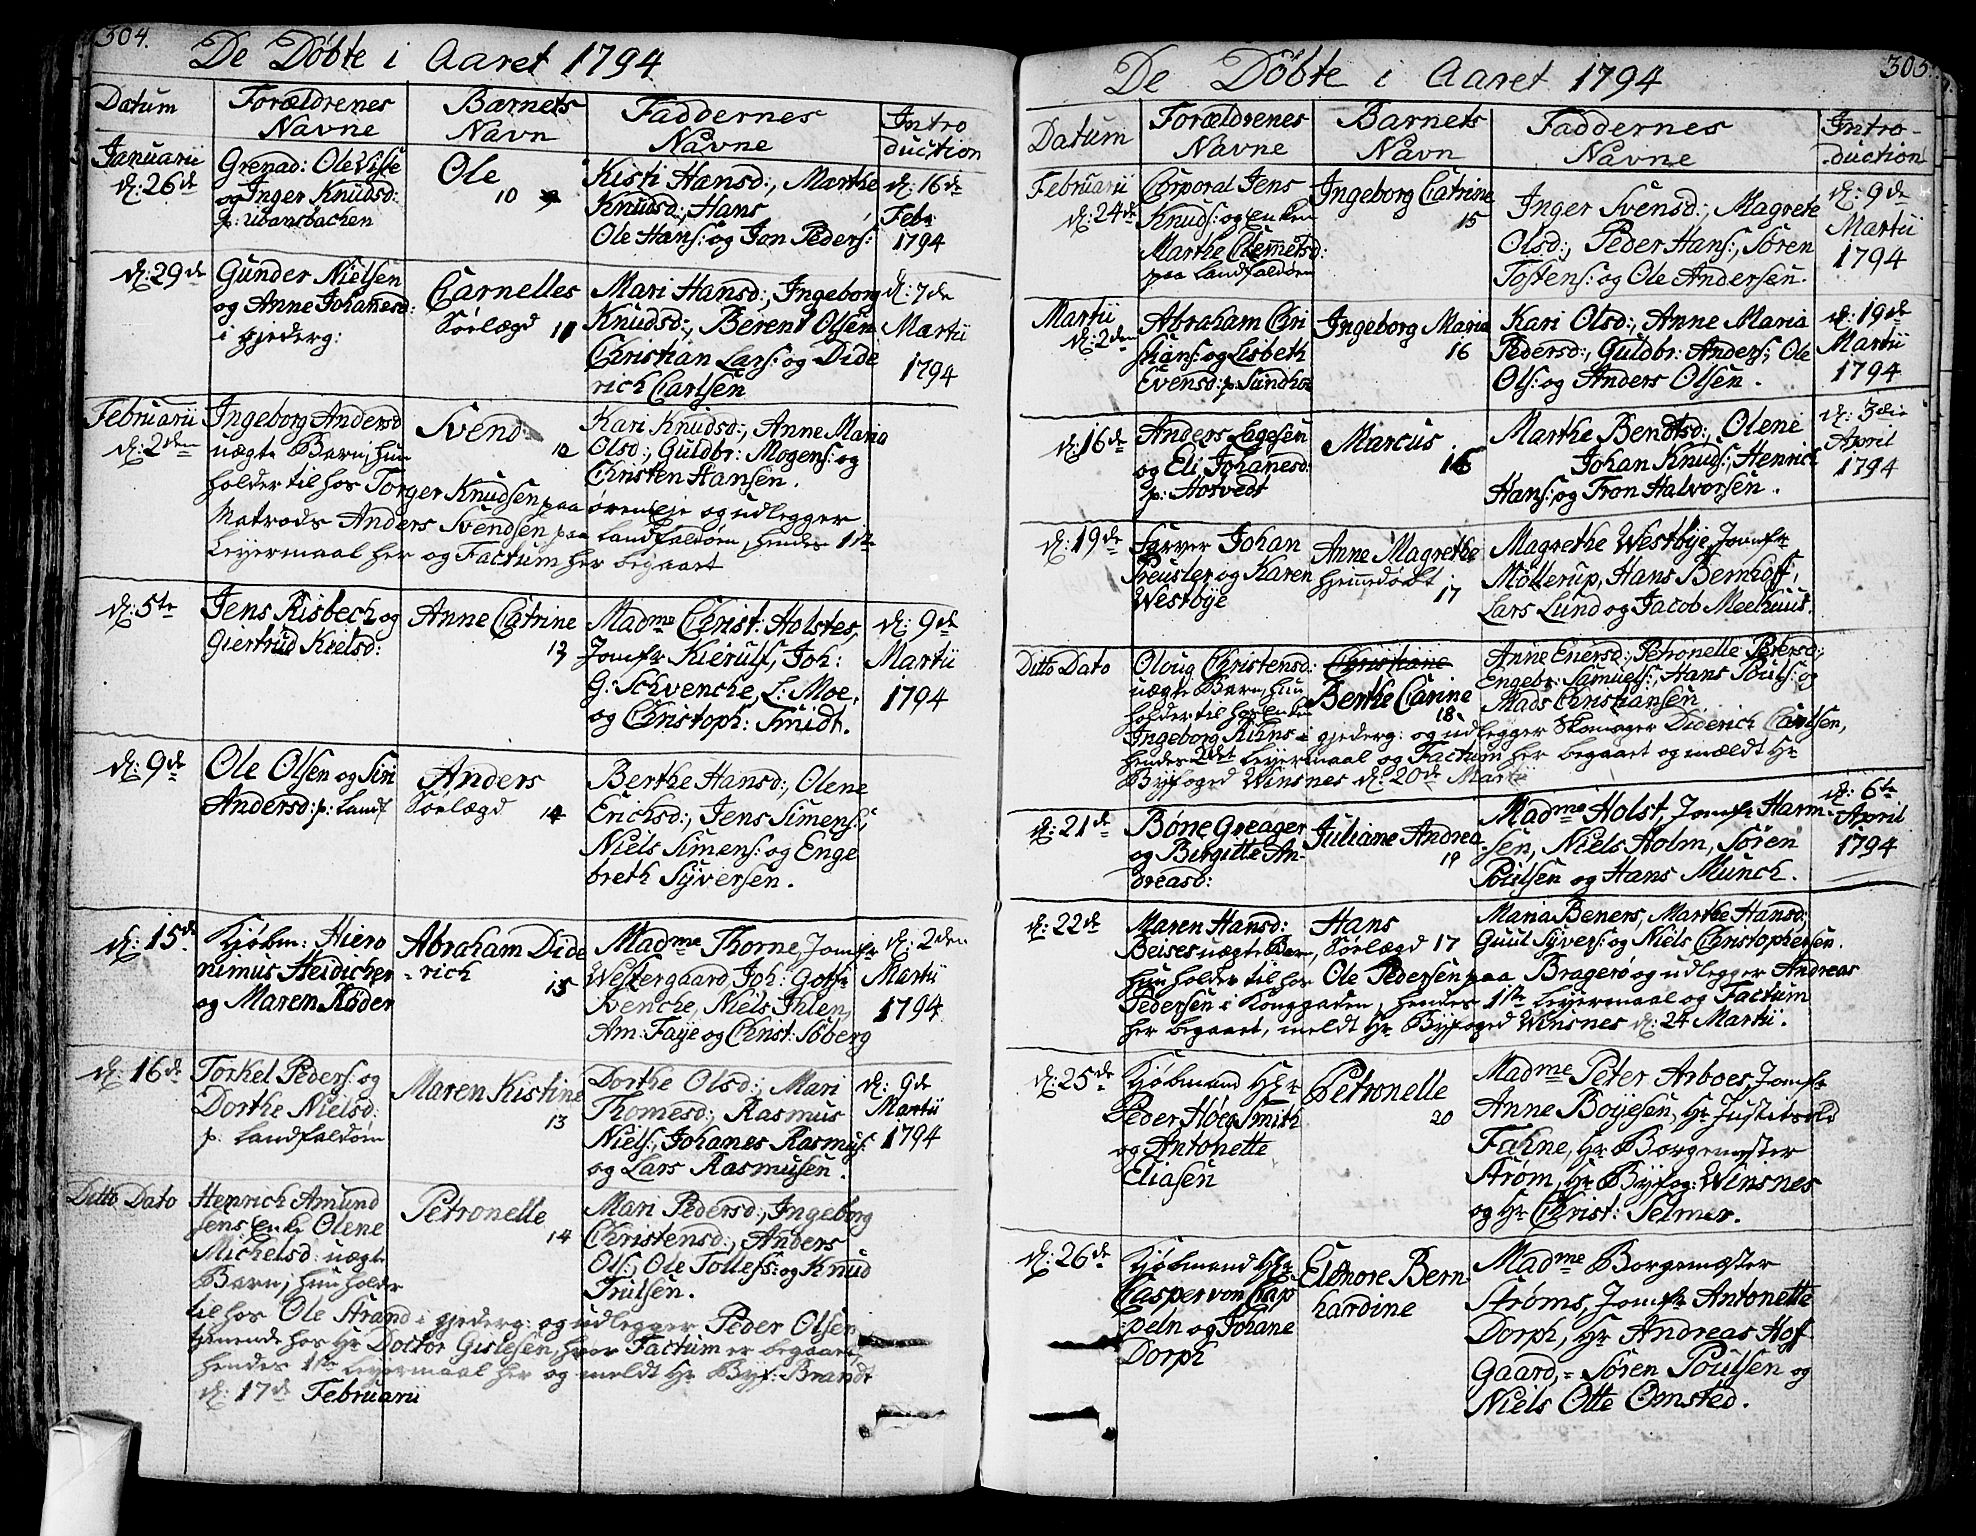 304.
De Döbte i Aaret 1794
Datum
Forældrenes
Navne
Barnets
Navn
Faddernes
Navne
Intro
duction
Januarii
d: 26de
Grenad: Ole
og Inger Knudsd:
Ole
10
Kisti Hansd:, Marthe
Knudsd:, Hans
Ole Hans: og Jon Peders:
d: 16de
Febr:
1794
d: 29de
Gunder Nielsen
og Anne Johanesd:
i gjederg:
Carnelles
Söelægd 11
Mari Hansd:, Ingeborg
Knudsd:, Berent Olsen
Christian Lars: og Dide
rich Carlsen
d: 7de
Martii
1794
Februarii
d: 2den
Ingeborg Andersd
uægte Barn, hun
holder til hos Torger Knudsen paa örenEje og udlegger
Matrods Anders Svendsen paa Landfaldöen, hendes 1ste
Leyermaal her og Factum her begaaet
Svend
12
Kari Knudsd:, Anne Maria
Olsd:, Guldbr: Mogens: og
Christen Hansen.
d: 5te
Jens Risbech og
Giertrud Kielsd:
Anne Catrine
13
Madme Christ: Holstes,
Jomfr Kierulf, Joh:
G: Schvencke, L: Moe,
og Christoph: Smidt.
d: 9de
Martii
1794
d: 9de
Ole Olsen og Siri
Andersd: p: Landf
Anders
Söelægd 14
Berthe Hansd:, Olene
Erichsd:, Jens Simens:,
Niels Simens: og Enge
breth Syversen.
d: 15de
Kjöbm: Hiero
nimus Heidicher
og Maren Röder
Abraham Dide
-rich
15
Madme Thorne, Jomfr
Westergaard, Joh: Gottfr
Svencke, Niels Ihlen,
Am: Faye og Christ: Söberg
d: 2den
Martii
1794
d: 16de
Torkel Peders: og
Dorthe Nielsd:
p: Landfaldöen
Maren Kistine
13
Dorthe Olsd:, Mari
Thomesd:, Rasmus
Niels:, Johanes Rasmus:
og Lars Rasmusen.
d: 9de
Martii
1794
Ditto Dato
Henrich Amund
sens Enke Olene
Michelsd: uægte
Barn, hun holder
til hos Ole Strand i gjederg: og udlegger Peder Olsen
tjenende hos Hr Doctor Gislesen, hvor Factum er begaaet,
hendes 1ste Leyermaal her og meldt Hr Byf: Brandt
d: 17de Februarii
Petronelle
14
Mari Pedersd:, Ingeborg
Christensd:, Anders
Ols:, Ole Tollefs: og Knud
Trulsen.
305.
De Döbte i Aaret 1794
Datum
Forældrenes
Navne
Barnets
Navn
Faddernes
Navne
Intro-
duction
Februarii
d: 24de
Corporal Jens
Knuds: og Enken
Marthe Clemetsd:
paa Landfaldöen
Ingeborg Catrine
15
Inger Svensd:, Magrete
Olsd:, Peder Hans:, Sören
Tostens: og Ole Andersen.
d: 9de
Martii
1794
Martii
d: 2den
Abraham Chri
stians: og Lisbeth
Evensd: p: Sundhou
Ingeborg Maria
16
Kari Olsd:, Anne Maria
Pedersd:, Guldbr: Anders:, Ole
Ols: og Anders Olsen.
d: 19de
Martii
1794
d: 16de
Anders Lagesen
og Eli Johanesd:
p: Hotvedt
Marcus
16
Marthe Bendtsd:, Olene
Johan Knuds:, Henrich
Hans: og Tron Halvorsen.
d: 3die
April
1794
d: 19de
Farver Johan
Preusler og Karen
Westbye
Anne Magrethe
hjemedöbt
17
Magrethe Westbye, Jomfr
Möllerup, Hans Bernhoff,
Lars Lund og Jacob Meelhuus.
Ditto Dato
Oloug Christensd:
uægte Barn, hun
holder til hos Enken
Ingeborg Kühns i gjederg: og udlegger Skomager Diderich Carlsen,
hendes 2det Leyermaal og Factum her begaaet og mældt Hr
Byfoged Winsnes d: 20de Martii
Christiane
Berthe Carine
18
Anne Enersd:, Petronelle Petersd:,
Engebr: Samuels:, Hans Pouls: og
Mads Christiansen
d: 21de
Börre Greager
og Birgitte An-
dreasd:
Juliane Andrea
19
Madme Holst, Jomfr Harm-
sen, Niels Holm, Sören
Poulsen og Hans Munch.
d: 6te
April
1794
d: 22de
Maren Hansd:
Beises uægte Barn,
hun holder til hos Ole Pedersen paa Bragerö og udlegger Andreas
Pedersen i Konggaden, hendes 1ste Leyermaal og Factum
her begaaet, meldt Hr Byfoged Winsnes d: 24 Martii.
Hans
Söelægd 17
Maria Beners, Marthe Hansd:
Guul Syvers: og Niels Christophersen.
d: 25de
Kjöbmand Hr
Peder Höeg Smith
og Antonette
Eliasen
Petronelle
20
Madme Peter Arboes, Jomfr
Anne Boyesen, Hr Justitsrd
Fahne, Hr Borgemester
Ström, Hr Byfog: Winsnes
og Hr Christ: Selmer.
d: 26de
Kjöbmand Hr
Casper von Cap
peln og Johane
Dorph
Elenore Bern
hardine
Madme Borgemester
Ströms, Jomfr Antonette
Dorph, Hr Andreas Hof
Gaard, Sören Poulsen og
Niels Otte Omsted.